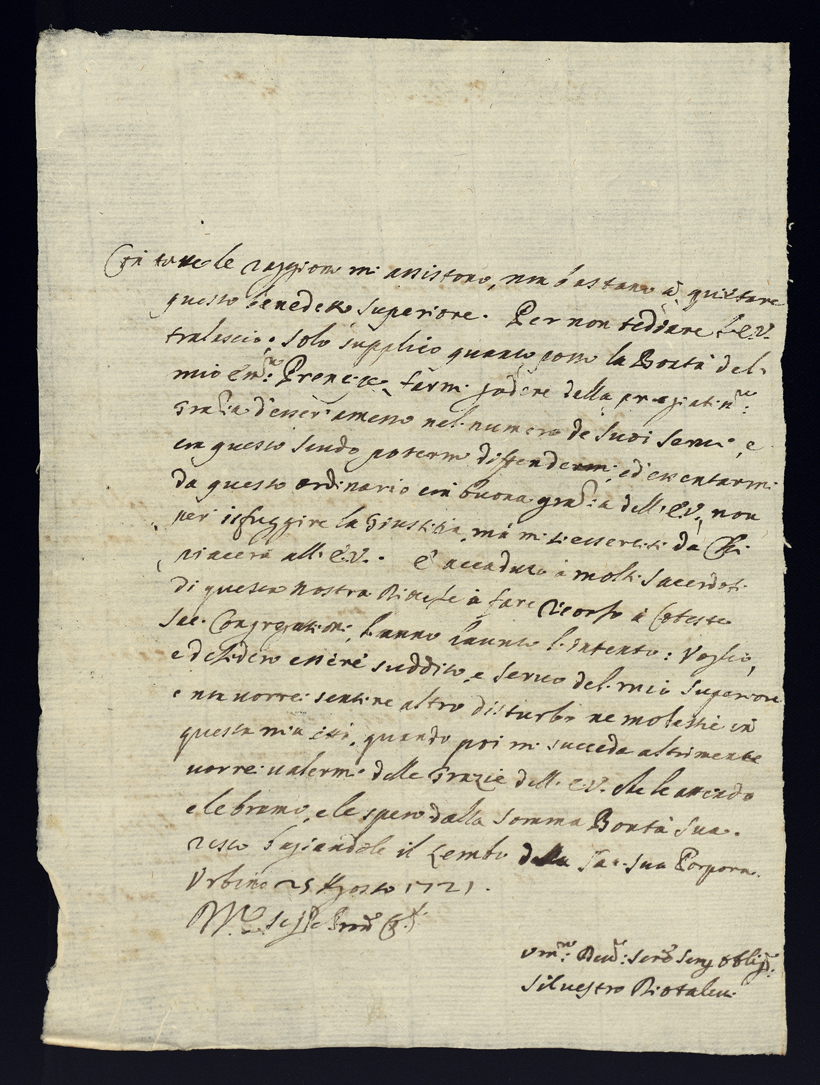 Con tutto le raggioni mi assistono, non bastano à quietare
questo benedetto Superiore. Per non teddiare l'E.V.
tralascio; solo supplico quanto posso la Bontà del
mio Em:mo Prencipe farmi godere della pregiatis:ma
grazia d'esser amesso nel numero de suoi servi, e
con questo scudo potermi diffendermi, ed esentarmi
da questo ordinario con buona grazia dell'E.V., non
per isfuggire la Giustitia, mà
piacerà all'E.V. E' accaduto à molti Sacerdoti
di questa nostra Diocese à fare ricorso à Coteste
Sac. Congregationi, hanno hauuto l'intento: Voglio,
e desidero essere suddito, e seruo del mio Superiore
e non uorrei sentire altro disturbi ne molestie in
questa mia età, quando poi mi succeda altrimente
uorrei ualermi delle grazie dell'E.V. che le attendo
e le bramo, e le spero dalla somma Bontà sua.
resto bagiandole il Lembo della Sac. sua Porpora.
Urbino 25 Agosto 1721.
um:mo Deu:mo ser:e oblig:mo
Siluestro